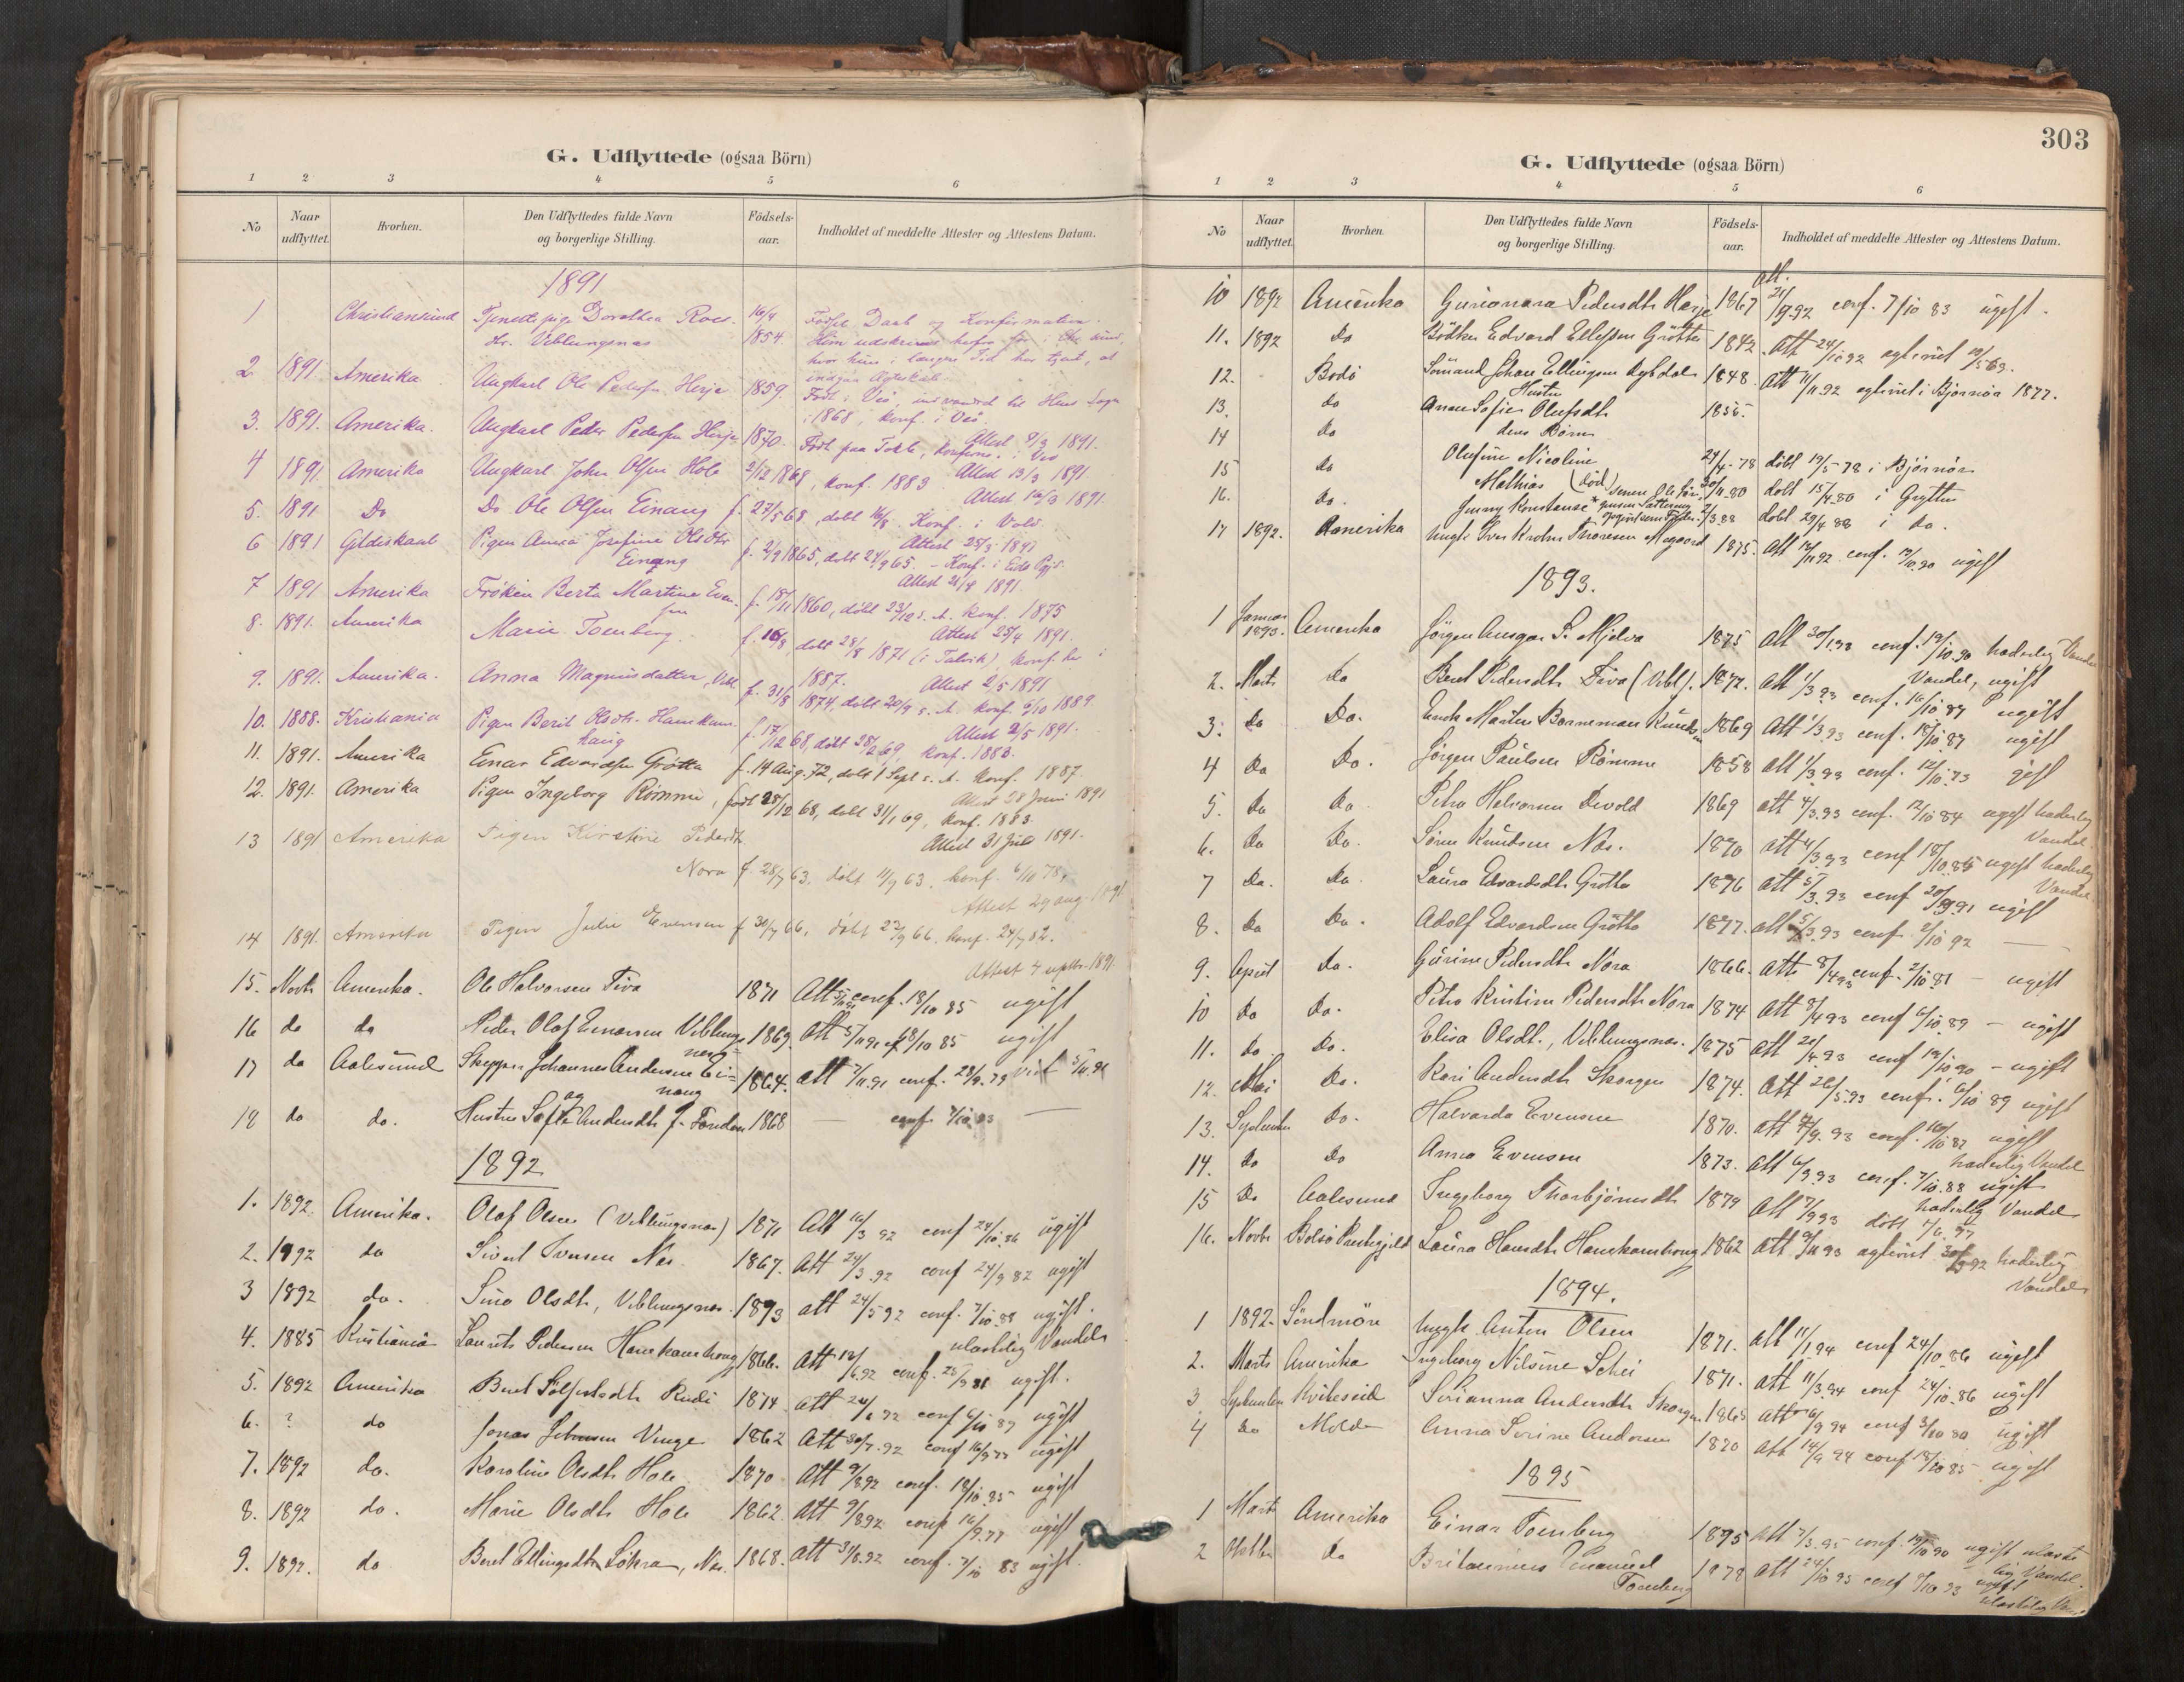 G. Udflyttede (ogsaa Börn)
1 2 3 4 5 6
No Naar udflyttet. Hvorhen. Den Udflyttedes fulde Navn og borgerlige Stilling. Födselsaar. Indholdet af meddelte Attester og Attestens Datum.
1891
1 Christiansund Tjenestepige Dorothea Roes- 16/4 1854. Födsel, Daab og Konfirmation.
Veblungsnæs
2 1891 Amerika Ungkarl Ole Pedersen Herje 1859.
Attest 9/3 1891.
3. 1891. Amerika. Ungkarl Peder Pedersen Herje 1870.
Attest 13/3 1891
4 1891. Amerika Ungkarl John Olsen Hole 2/12 1868, konf. 1883
Attest 16/3 1891.
5. 1891 Do Do Ole Olsen Einang f. 27/5 68, døbt 16/8. Konf. i Vold.
Attest 25/3 1891
6 1891 Gildeskaal Pigen Anna Josefine Olsdtr Einang f. 2/9 1865, døbt 24/9 65. - Konf. i Eids Pgj.
Attest 21/4 1891
7 1891 Amerika Frøken Berta Martine Evensen f. 18/11 1860, døbt 23/12 s. A. konf. 1875
Attest 25/4 1891.
8. 1891. Amerika Marie Toenberg. f. 16/8, døbt 28/8 1871 (i Talvik), konf. her i 1887.
Attest 2/5 1891
9. 1891. Amerika. Anna Magnusdatter, Vebl. f. 31/8 1874, døbt 20/9 s. A. konf. 6/10 1889.
Attest 2/5 1891.
10. 1888. Kristiania Pigen Berit Olsdtr. Hamkamhaug f. 17/12 68, døbt 28/2 69, konf. 1883.
11. 1891. Amerika Einar Edvardsen Grøtta f. 14 Aug. 72, døbt 1 Sept s. A. konf. 1887.
Attest 28 Juni 1891
12. 1891. Amerika Pigen Ingeborg Rømme, født 28/12 68, døbt 31/1 69, konf. 1883.
Attest 31 Juli 1891.
13 1891 Amerika Pigen Kirstine Pedersdtr Nora f. 28/7 63, døbt 11/9 63, konf. 6/10 78,
Attest 29 aug. 1891
14 1891. Amerika Pigen Julie Evensen f 30/7 66, døbt 23/9 66, konf. 24/9 82.
Attest 4 septbr. 1891.
15. Novbr Amerika. Ole Halvorsen Fiva 1871 Att conf. 18/10 85 ugift
16 do do Peder Olaf Einarsen Veblungsnes 1869. Att 5/11 91 cf 18/10 85 ugift
17 do Aalesund Skipper Johannes Andersen Einang 1864. Att 7/11.91 conf. 28/9.79
og
18 do do. Hustru Sofie Andersdtr f. Tondon 1868 — conf 7/10 83 —
1892
1. 1892. Amerika. Olaf Olsen (Veblungsnæs) 1871 Att 16/3 92 conf 24/10.86 ugift
2. 1892 do Sivert Iversen Næs 1867. Att 24/3.92 conf 24/9 82 ugift
3 1892 do. Sina Olsdtr, Veblungsnæs. 1873 att 24/5 92 conf. 7/10.88 ugift.
ulastelig Vandel
4. 1885 Kristiania Laurits Pedersen Hamkamhoug 1866. Att 18/6.92 conf. 25/9 81 ugift.
5. 1892 Amerika Beret Solfestsdtr Rudi 1874 att 24/6 92 conf 6/10 89 ugift
6. ? do Jonas Johnsen Venge 1862 Att 30/7.92 conf 16/9 77 ugift
7. 1892 do. Karoline Olsdtr Hole 1870 Att 9/8 92 conf. 18/10.85 ugift
8. 1892 do. Marie Olsdtr Hole 1862 Att 9/8 92 conf 16/9.77 ugift
9. 1892. do Beret Ellingsdtr Sökra, Næs. 1868. Att 31/8.92 conf. 7/10 83 ugift.
303
G. Udflyttede (ogsaa Börn)
1 2 3 4 5 6
No Naar udflyttet. Hvorhen Den Udflyttedes fulde Navn og borgerlige Stilling. Födselsaar. Indholdet af meddelte Attester og Attestens Datum.
10 1892 Amerika Gurianna Pedersdtr Herje 1867 att. 21/9.92 conf. 7/10 83 ugift.
11. 1892 do Bödker Edvard Ellefsen Grötta 1842. Att 24/10 92 egteviet 19/5 63.
12. Bodö Sömand Johan Ellingsen 1848. Att 11/11.92 egteviet i Bjørnør 1877.
Hustru
13. do Anne Sofie Olufsdtr 1856.
deres Børn
14 do Olufine Nicoline 24/4-78 døbt 19/5 78 i Bjørnør
15 do Mathias (død) døbt 15/4.80 i Grytten
16. do. Jenny Konstanse 2/3.88 døbt 29/4 88 i do.
17 1892. Amerika Ungk Iver Krohn Thoresen 1875. Att 12/11 92 conf. 19/10.90 ugift
1893.
1 Januar 1893. Amerika Jörgen Ansgar S. Mjelva 1875 Att 30/1.93 conf. 19/10.90 hæderlig Vandel
Vandel, ugift
2. Marts do Beret Pedersdtr Fiva (Vebl). 1872. Att 1/3 93 conf. 16/10 87 ugift
3. do Do. Erik Martin Bornemann Knudsen 1869 Att 1/3 93 conf. 18/10.87 ugift
4 do Do. Jörgen Paulsen Römme 1858 Att 1/3.93 conf. 12/10.73 gift
5. do do Petra Halvorsen Devold 1869 att 4/3.93 conf. 12/10 84 ugift hæderlig Vandel
6. do do. Sören Knudsen Næs. 1870 att 4/3.93 conf 18/10.85 ugift hæderlig Vandel
7 do. do Laura Edvardsdtr Grötta 1876 att 5/3.93 conf 20/9 91 ugift
8. do do. Adolf Edvardsen Grötta 1877. att 5/3.93 conf 2/10 92 —
9. April do. Gurine Pedersdtr Nora 1866. Att 8/4 93 conf. 2/10 81 — ugift
10 do do. Petra Kirstine Pedersdtr Nora 1874 Att 8/4 93 conf 6/10 89 — ugift
11. do do. Elisa Olsdt., Veblungsnæs. 1875 Att 21/4.93 conf 19/10 90 — ugift
12. Mai do. Kari Andersdtr Skorgen 1874. Att 26/5.93 conf. 6/10 89 ugift
13. September do. Halvarda Evensen 1870. att 4/9.93 conf. 16/10 87 ugift
hæderlig Vandel
14. do do Anna Evensen 1873. Att 6/9.93 conf. 7/10.88 ugift
hæderlig Vandel
15 do Aalesund Ingeborg Thorbjörnsdtr 1879 Att 7/9 93 döbt
16. Novbr Bolsö Præstegjeld Laura Hansdtr Hamkamhoug 1862 Att 9/11 93 egteviet hæderlig Vandel
1894.
1 1892. Söndmöre Ungk. Anton Olsen 1871. Att 11/1.94 conf 24/10.86 ugift
2. Marts Amerika Ingeborg Nilsine Setei 1871. att 11/3.94 conf 24/10.86 ugift
3 September Kviteseid Serianna Andersdtr Skorgen 1865 att 6/9 94 conf 3/10 80 ugift
4 do Molde Anna Serine Andersen 1870 Att 14/9 94 conf 18/10 85 ugift
1895
1 Marts Amerika Einar Toenberg 1895 Att 7/3.95 conf. 19/10 90 ugift ulastelig Vandel.
2 Oktbr do Emanuel Toenberg 1878 Att 24/10 95 conf 8/10 93 ugift